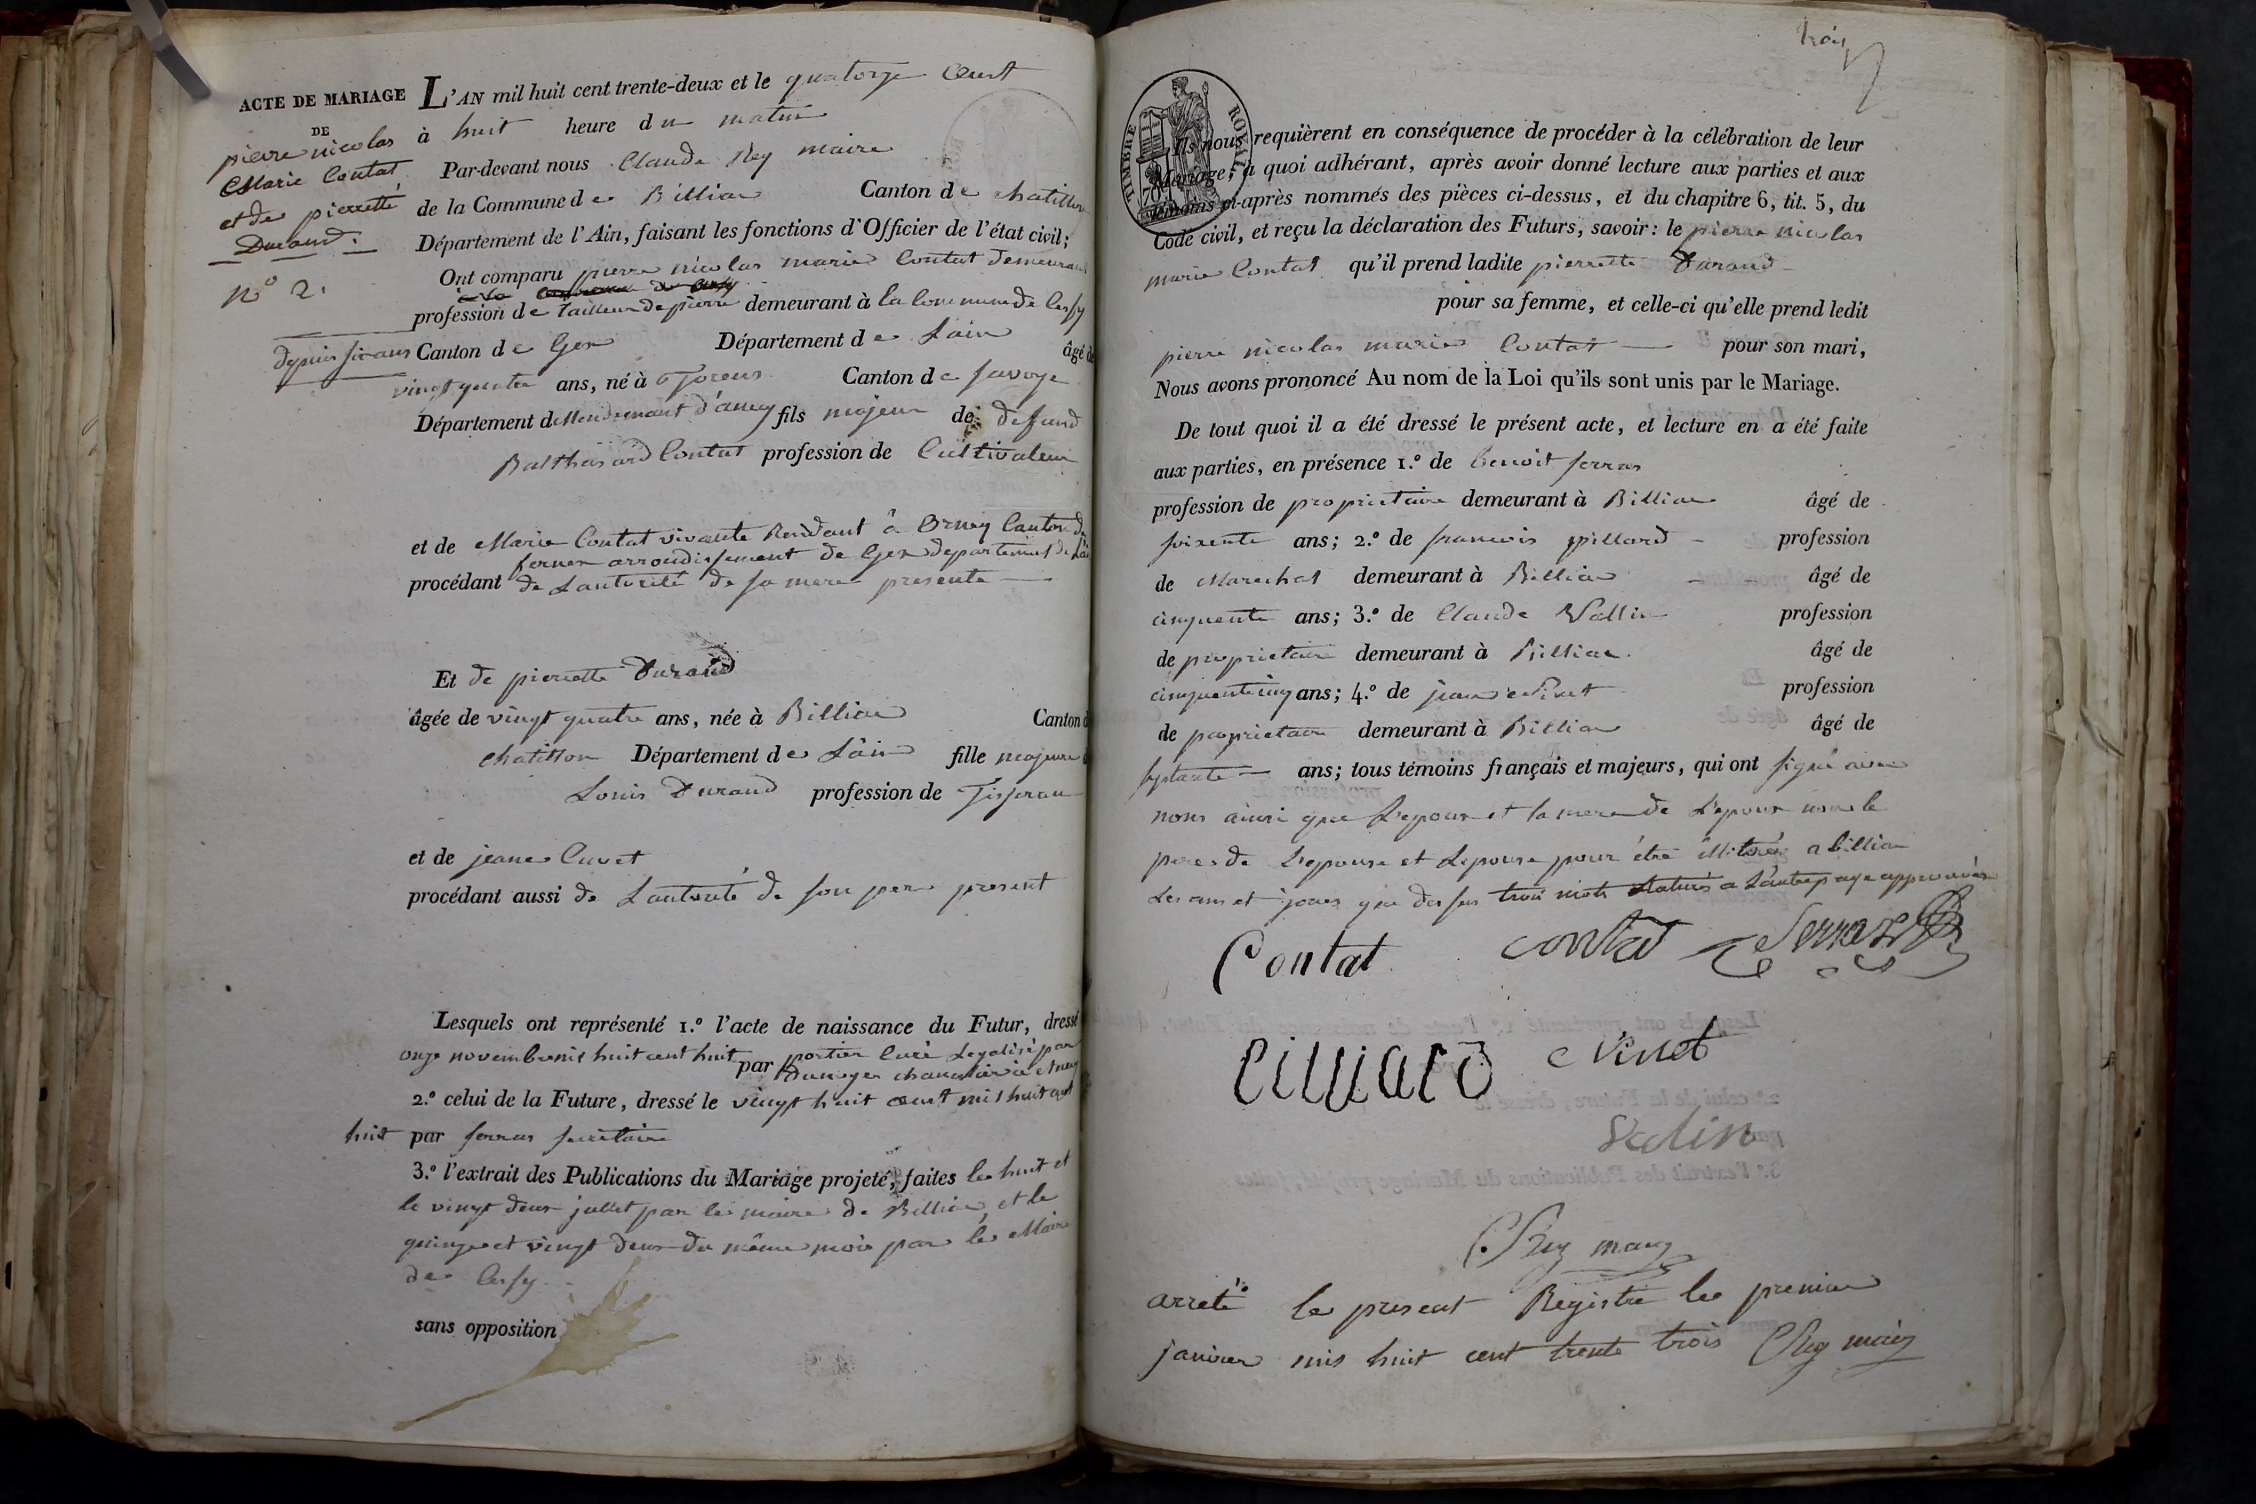 ACTE DE MARIAGE
DE
pierre nicolas
Marie Contat
et de pierrette
Durand.
N° 2.
L'AN mil huit cent trente-deux et le quatorze aout
à huit heure du matin
Par-devant nous Claude Rey maire
de la Commune de Billiac Canton de chatillon
Département de l'Ain, faisant les fonctions d'Officier de l'état civil;
Ont comparu pierre nicolas marie Contat demeurant
profession de Tailleur de pierre demeurant à la Commune de Cessy
depuis six ans Canton de Gex Département de Lain âgé de
vingt quatre ans, né à Torens Canton de savoye
Département de d'anecy fils majeur de defund
Balthasard Contat profession de Cultivateur
et de Marie Contat vivante Residant à Ornex Canton de
ferney arrondissement de Gex departement de Lain
procédant de Lautorité de sa mere presente
Et de pierrette Durand
âgée de vingt quatre ans, née à Billiac Canton de
chatillon Département de Lain fille majeure
Louis Durand profession de Tisseran
et de jeane Cuvet
procédant aussi de Lautorité de son pere present
Lesquels ont représenté 1.° l'acte de naissance du Futur, dressé
onze novembre mil huit cent huit par portier Curé Legalisé par
2.° celui de la Future, dressé le vingt huit aout mil huit cent
huit par ferras secretaire
3.° l'extrait des Publications du Mariage projeté, faites le huit et
le vingt deux jullet par le maire de Billiac, et le
quinze et vingt deux du même mois par le Maire
de Cessy.
sans opposition
TIMBRE ROYAL
Ils nous requièrent en conséquence de procéder à la célébration de leur
Mariage; à quoi adhérant, après avoir donné lecture aux parties et aux
témoins ci-après nommés des pièces ci-dessus, et du chapitre 6, tit. 5, du
Code civil, et reçu la déclaration des Futurs, savoir: le pierre nicolas
marie Contat qu'il prend ladite pierrette Durand
pour sa femme, et celle-ci qu'elle prend ledit
pierre nicolas marie Contat pour son mari,
Nous avons prononcé Au nom de la Loi qu'ils sont unis par le Mariage.
De tout quoi il a été dressé le présent acte, et lecture en a été faite
aux parties, en présence 1.° de benoit ferras
profession de proprietaire demeurant à Billiac âgé de
soixente ans; 2.° de francois pillard profession
de Marechal demeurant à Billiac âgé de
cinquente ans; 3.° de Claude Vallin profession
de proprietaire demeurant à Billiac. âgé de
cinquente cinq ans; 4.° de jean Vinet profession
de proprietaire demeurant à Billiac âgé de
septante ans; tous témoins français et majeurs, qui ont signé avec
nous ainsi que Lepoux et la mere de Lepoux non le
pere de Lepouse et Lepouse pour être illiteré a billiac
Les ans et jours que dessus trois mots à Lautre page approuvés
Contat contat Serraz
pillard Vinet
Valin
C. Rey maire
arreté le present Registre le premier
janvier mil huit cent trente trois C Rey maire